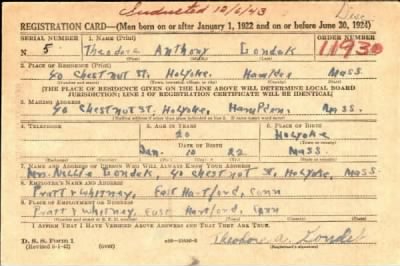 Inducted 12/6/43
REGISTRATION CARD—(Men born on or after January 1, 1922 and on or before June 30, 1924)
SERIAL NUMBER 1. NAME (Print) ORDER NUMBER
N 5 Theodore Anthony Gondek 11930
(First) (Middle) (Last)
2. PLACE OF RESIDENCE (Print)
40 Chestnut St. Holyoke Hampden Mass.
[THE PLACE OF RESIDENCE GIVEN ON THE LINE ABOVE WILL DETERMINE LOCAL BOARD
JURISDICTION; LINE 2 OF REGISTRATION CERTIFICATE WILL BE IDENTICAL]
3. MAILING ADDRESS
40 Chestnut St. Holyoke, Hampden, Mass.
4. TELEPHONE 5. AGE IN YEARS 6. PLACE OF BIRTH
20 Holyoke
DATE OF BIRTH
Jan. 10 22 Mass.
7. NAME AND ADDRESS OF PERSON WHO WILL ALWAYS KNOW YOUR ADDRESS
Mrs. Nellie Gondek, 40 Chestnut St, Holyoke, Mass
8. EMPLOYER'S NAME AND ADDRESS
Pratt & Whitney, East Hartford, Conn
9. PLACE OF EMPLOYMENT OR BUSINESS
Pratt & Whitney, East Hartford, Conn
I AFFIRM THAT I HAVE VERIFIED ABOVE ANSWERS AND THAT THEY ARE TRUE.
D. S. S. Form 1
(over) Theodore A. Gondek